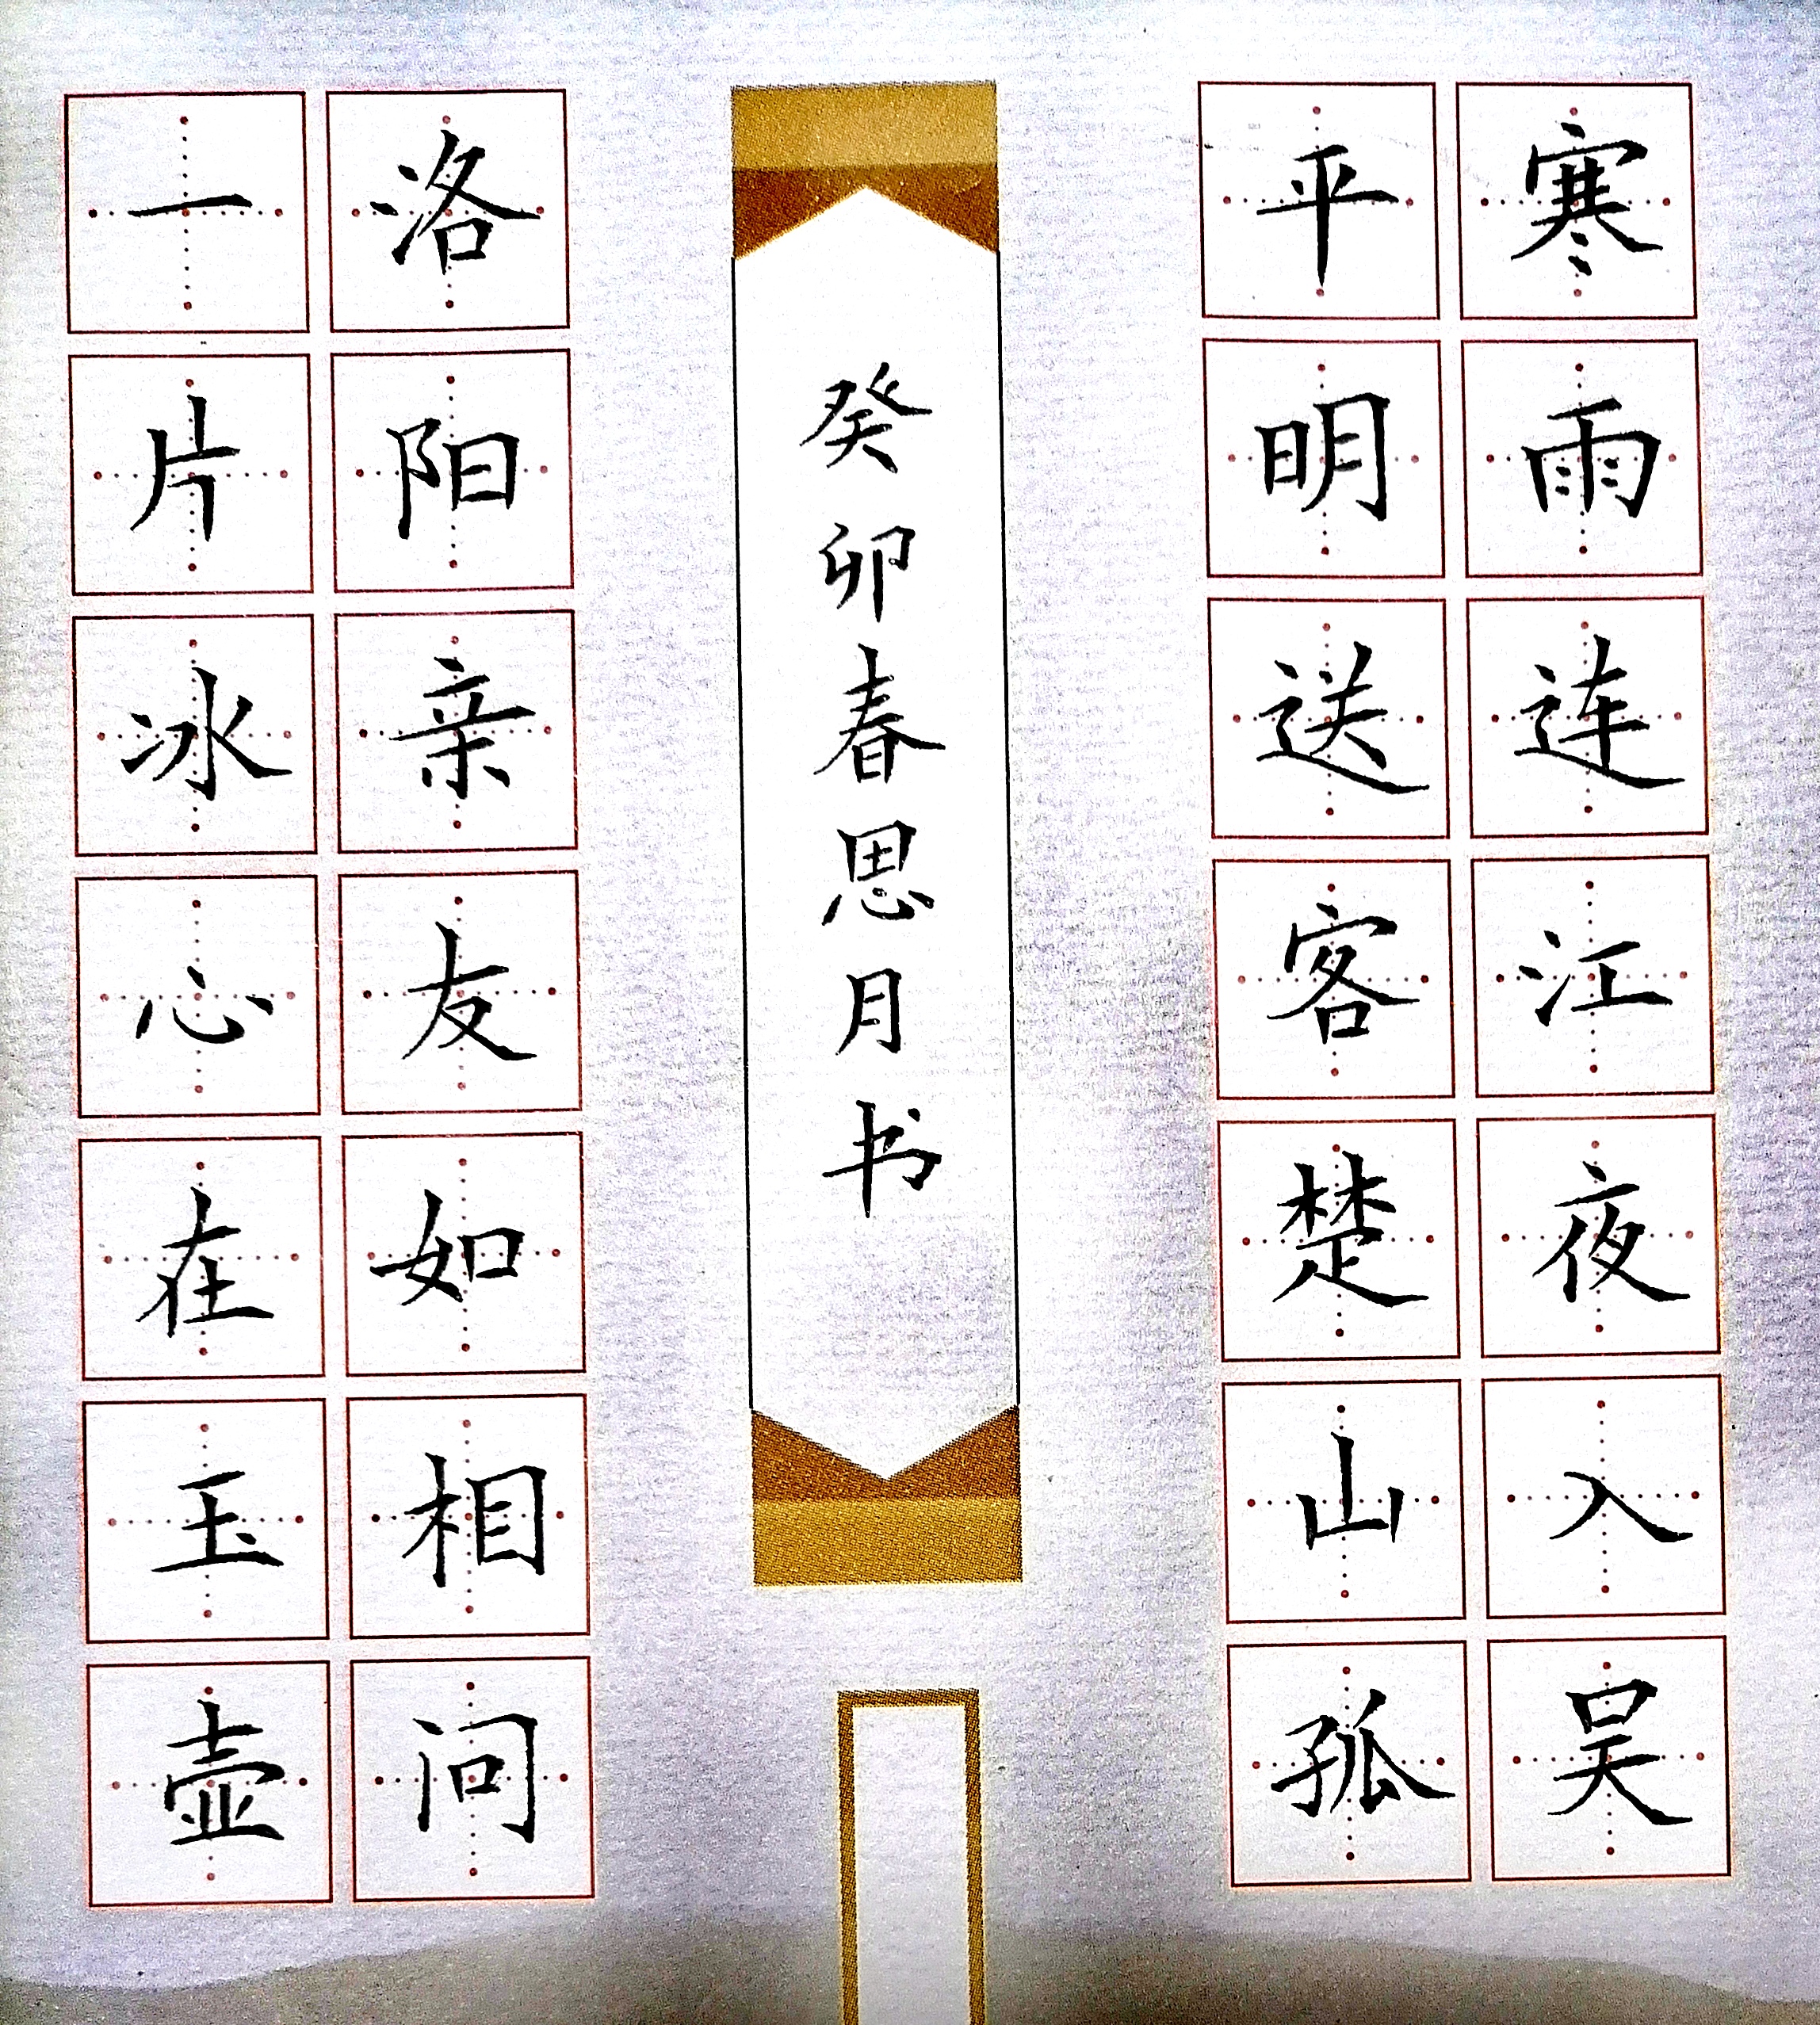 寒雨连江夜入吴
平明送客楚山孤
癸卯春思月书
洛阳亲友如相问
一片冰心在玉壶